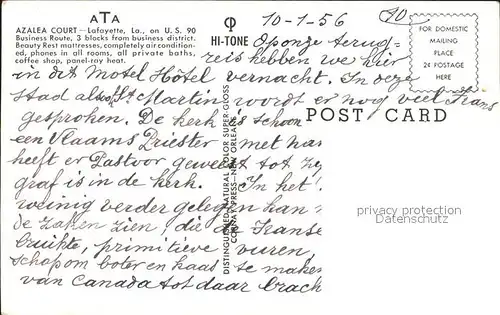 ATA
AZALEA COURT — Lafayette, La., on U. S. 90
Business Route, 3 blocks from business district.
Beauty Rest mattresses, completely air condition-
ed, phones in all rooms, all private baths,
coffee shop, panel-ray heat.
HI-TONE
10-1-56
FOR DOMESTIC
MAILING
PLACE
2¢ POSTAGE
HERE
POST CARD
DISTINCTIVE NATURAL COLOR SUPER-GLOSS
PRESS—NEW ORLEANS
Op onze terug-
reis hebben we hier
in dit Motel Hôtel vernacht. In deze
stad alsook St Martin wordt er nog veel Frans
gesproken. De kerk is schoon
een Vlaams Priester met
heeft er Pastoor geweest tot
graf is in de kerk. In het
weinig verder gelegen kan-
de zaken zien, die de Franse
bruikte, primitieve vuren
schap om boter en kaas te maken
van Canada tot daar brach
privacy protection
Datenschutz